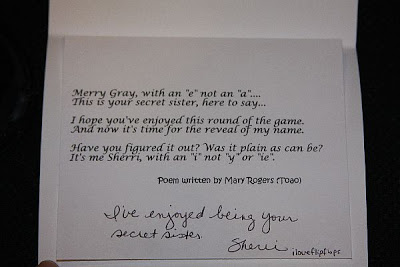 Merry Gray, with an "e" not an "a"....
This is your secret sister, here to say...
I hope you've enjoyed this round of the game.
And now it's time for the reveal of my name.
Have you figured it out? Was it plain as can be?
It's me Sherri, with an "i" not "y" or "ie".
Poem written by Mary Rogers (Toao)
I've enjoyed being your
secret sister.
Sherri
iloveflipflops